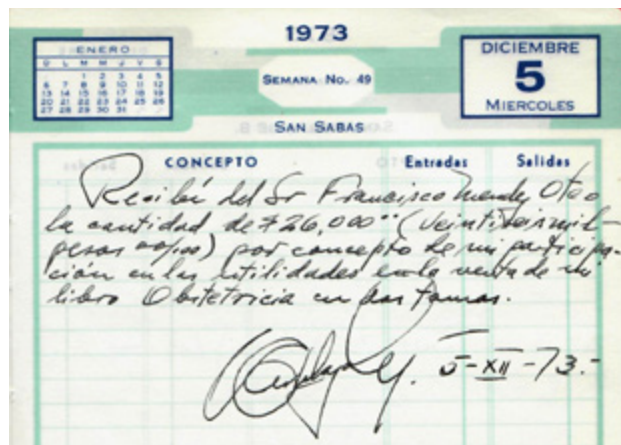 1973
ENERO
D L M M J V S
1 2 3 4 5
6 7 8 9 10 11 12
13 14 15 16 17 18 19
20 21 22 23 24 25 26
27 28 29 30 31
SEMANA No. 49
DICIEMBRE
5
MIERCOLES
SAN SABAS
CONCEPTO Entradas Salidas
Recibí del Sr Francisco Mendez Oteo
la cantidad de $ 26,000.00 (veintiseis mil
pesos 00/100) por concepto de mi participa-
ción en las utilidades en la venta de mi
libro Obstetricia en dos tomos.
5-XII-73.-